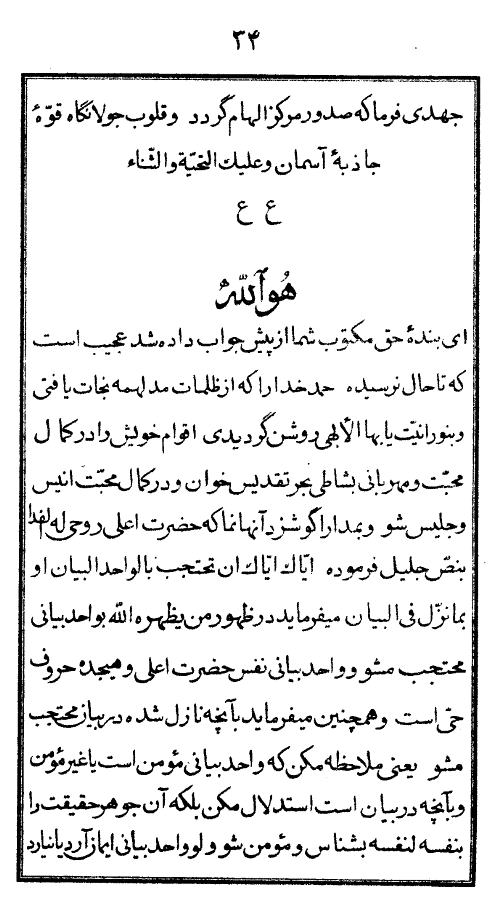 ۳۴
جهدی فرما که صدور مرکز الهام گردد و قلوب جولانگاه قوّهٔ
جاذبهٔ آسمان و علیک التّحیّة و الثّناء
ع ع
هُو اللّه
ای بندهٔ حق مکتوب شما از پیش جواب داده شد عجیب است
که تا حال نرسیده حمد خدا را که از ظلمات مدلهمه نجات یافتی
و بنورانیّت یا بهاء الأبهی روشن گردیدی اقوام خویش را در کمال
محبّت و مهربانی بشاطی بحر تقدیس خوان و در کمال محبّت انیس
و جلیس شو و بمدارا گوشزد آنها نما که حضرت اعلی روحی له الفدا
بنصّ جلیل فرموده ایّاک ایّاک ان تحتجب بالواحد البیان او
بما نزّل فی البیان میفرماید در ظهور من یظهره اللّه بواحد بیانی
محتجب مشو و واحد بیانی نفس حضرت اعلی و هیجده حروف
حیّ است و همچنین میفرماید بآنچه نازل شده در بیان محتجب
مشو یعنی ملاحظه مکن که واحد بیانی مؤمن است یا غیر مؤمن
و بآنچه در بیان است استدلال مکن بلکه آن جوهر حقیقت را
بنفسه لنفسه بشناس و مؤمن شو ولو واحد بیانی ایمان آرد یا نیارد